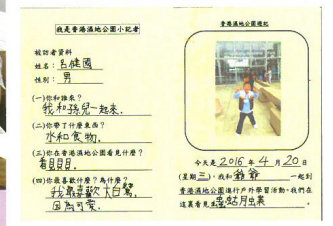 我是香港濕地公園小記者
被訪者資料
姓名：呂健國
性別：男
(一)你和誰來？
我和孫兒一起來．
(二)你帶了什麼東西？
水和食物．
(三)你在香港濕地公園看見什麼？
看見貝貝．
(四)你最喜歡什麼？為什麼？
我最喜歡大白鷺，
因為可愛．
香港濕地公園遊記
今天是2016年4月20日
(星期三)，我和爺爺一起到
香港濕地公園進行戶外學習活動，我們在
這裏看見